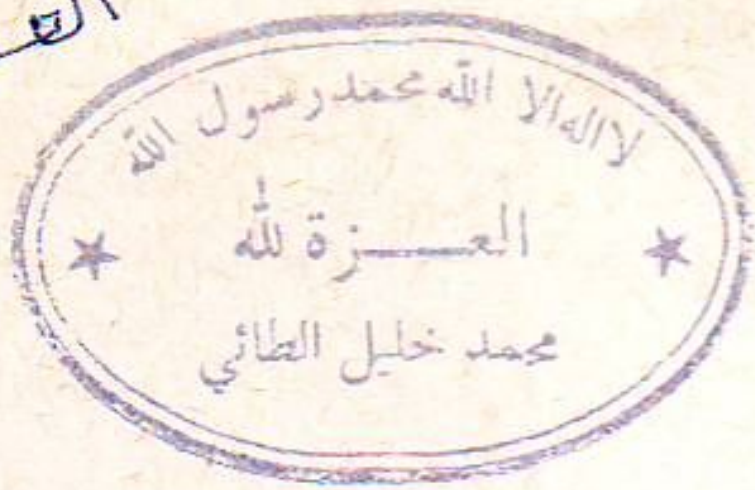 لا اله الا الله محمد رسول الله
العزة لله
محمد خليل الطائي